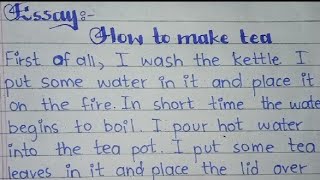 Essay:-
How to make tea
First of all, I wash the kettle. I
put some water in it and place it
on the fire. In short time the wate
begins to boil. I pour hot water
into the tea pot. I put some tea
leaves in it and place the lid over